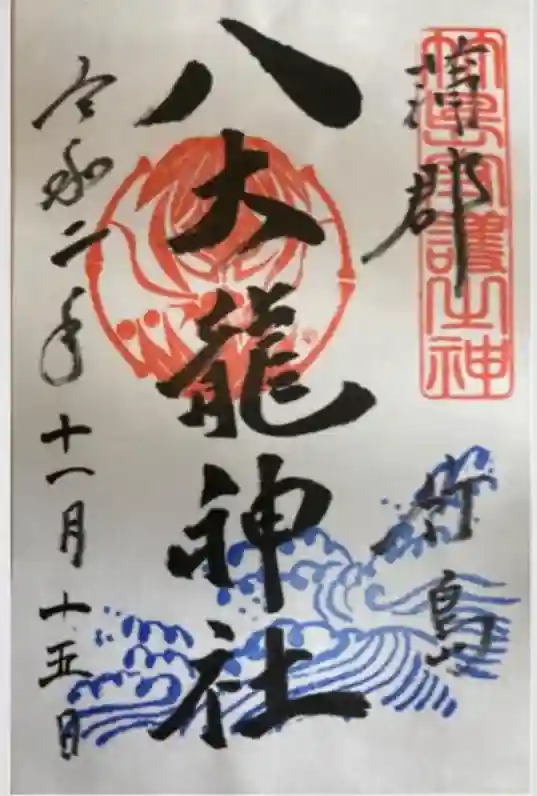 蒲郡
竹島
八大龍神社
令和二年十一月十五日